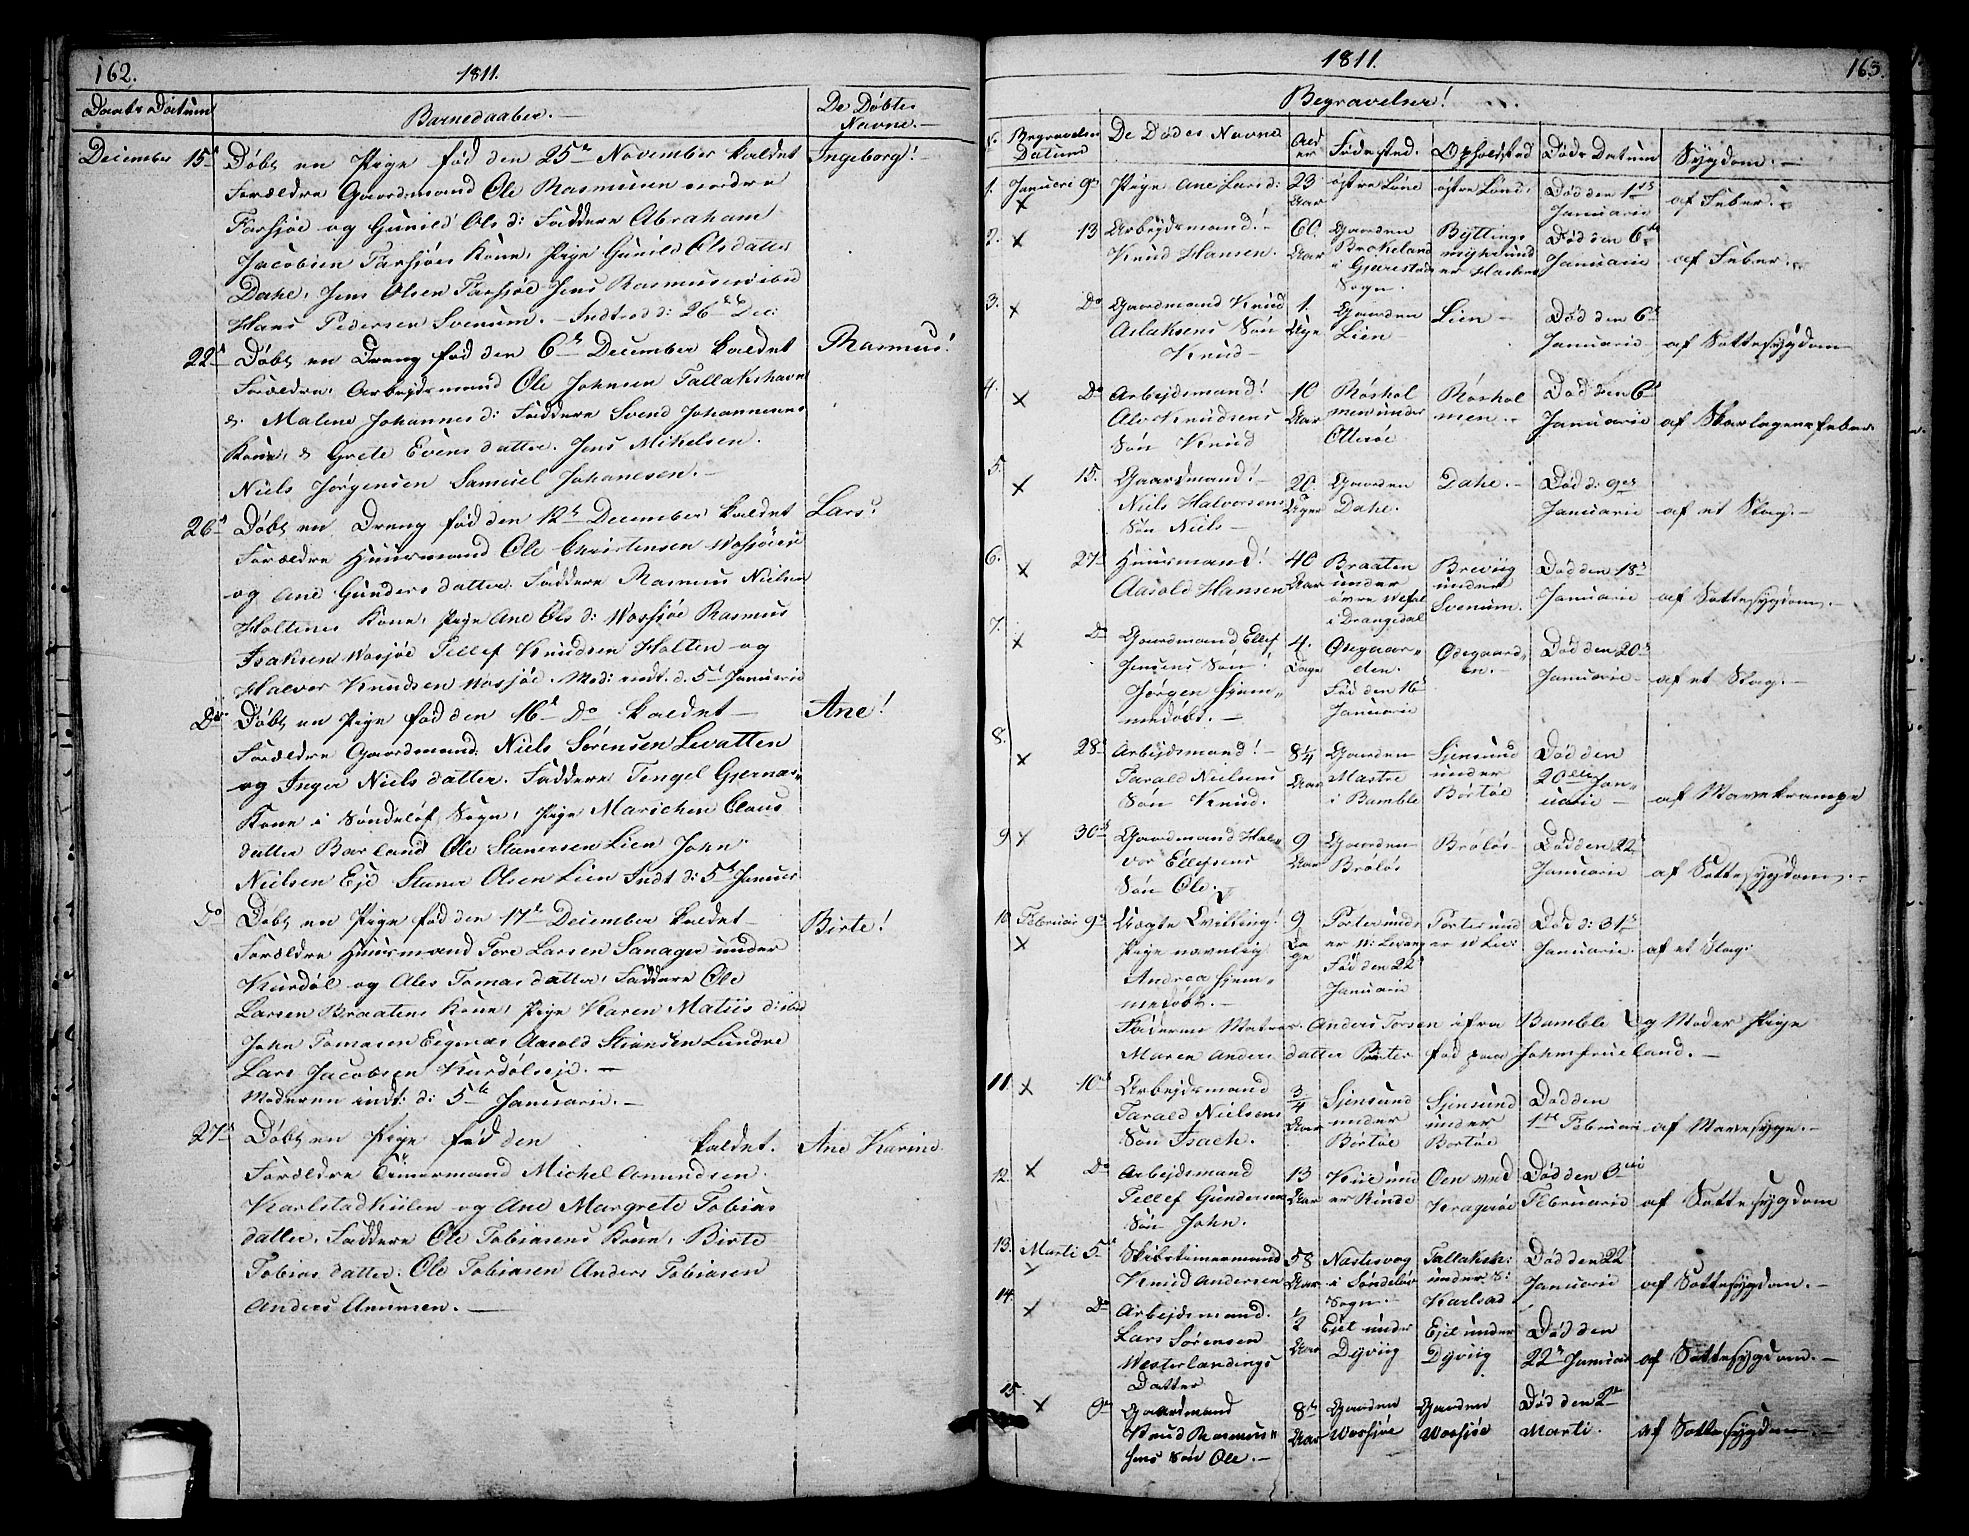 162.
1811.
Daabs Datum
Barnedaaber. —
De Døbtes
Navne. —
December 15d
Døbt en Pige fød den 25de November kaldet
Ingeborg!
Forældre Gaardsmand Ole Rasmusen nordre
Farsjøe og Gunild Ols d: Faddere Abraham
Jacobsen Farsjøes Kone, Pige Gunild Olsdatter
Dahe, Jens Olsen Farsjøe Jens Rasmusen ibid
Hans Pedersen Svenum. — Indtrod d: 26de Dec:
22d
Døbt en Dreng fød den 6te December kaldet
Rasmus!
Forældre, Arbejdsmand Ole Johnsen Tallakshavn
&. Malene Johannes d: Faddere Svend Johannesens
Kone, & Grete Evensdatter. Jens Mikelsen.
Niels Jørgensen Samuel Johanesen. —
26d
Døbt en Dreng fød den 12te December kaldet
Lars!
Forældre Huusmand Ole Christensen Wosjøeie
og Ane Gundersdatter. Faddere Rasmus Nielsen
Holtenes Kone, Pige Ane Ols d: Wosjøe Rasmus
Isaksen Wosjøe Tellef Knudsen Holten og
Halvor Knudsen Wosjøe. Mod: indt. d. 5te Januarie
Do
Døbt en Pige fød den 16d Do kaldet —
Ane!
Forældre Gaardmand: Niels Sørensen Levatten
og Inger Nielsdatter. Faddere Tengel Gjernæs
Kone i Søndeløf Sogn, Pige Marichen Claus
datter Barland Ole Stanersen Lien John
Nielsen Ejd Staner Olsen Lien Indt d: 5te Januar
Do
Døbt en Pige fød den 17de December kaldet —
Birte!
Forældre Huusmand Tore Larsen Sanager under
Kurdøl og Ales Tomasdatter, Faddere Ole
Larsen Braatens Kone, Pige Karen Matiis d: ibid
John Tomasen Eegenæs Aasold Stiansen Lundre
Lars Jacobsen Kurdølseje. —
Moderen indt: d: 5te Januarie. —
27d
Døbt en Pige fød den kaldet.
Ane Karine
Forældre Tømermand Michel Amundsen
Karlstadkielen og Ane Margrete Tobias
datter, Faddere Ole Tobiasens Kone, Birte
Tobiasdatter. Ole Tobiasen Anders Tobiasen
Anders Anunsen. —
1811.
163.
Begravelser!
No Begravelses Datum
De Dødes Navne
Alder
Fødested.
Opholdsted
Døds Datum
Sygdom. —
1. Januari 9de
Pige Ane Lars d:
23 Aar
østre Lone
østre Lone
Død den 1ste Januarie
af Feber. —
2. 13
Arbejdsmand! — Knud Hansen.
60 Aar
Gaarden Brokeland i Gjerestads Sogn.
Død den 6te Januarie
af Feber. —
3. Do
Gaardmand Knud Aslaksens Søn Knud —
1. Uge
Gaarden Lien —
Lien —
Død den 6te Januarie
af Sottesygdom
4. Do
Arbejdsmand! Alv Knudsens Søn Knud
10 Aar
Røshol men under Otterøe
Røshol men. —
Død den 6te Januarie
af Skarlagensfeber
5. 15.
Gaardmand! Niels Halvorsens Søn Niels —
20. Uger
Gaarden Dahe.
Dahe. —
Død d: 9de Januarie
af et Slag. —
6. 27de
Huusmand! Aasold Hansen
40 Aar
Braaten under øvre Wefal i Drangedal
Breviig under Svenum.
Død den 18de Januarie
af Sottesygdom. —
7. Do
Gaardmand Ellef Jensens Søn Jørgen Hjemmedøbt. —
4. Dage
Øegaarden. Fød den 16d Januarie
Ødegaarden. —
Død den 20de Januarie —
af et Slag. —
8. 28de
Arbejdsmand! — Tarald Nielsens Søn Knud.
8¼ Aar
Gaarden Mastre i Bamble
Sjensund under Bortøe
Død den 20de Januarie —
af Mavekrampe
9. 30de
Gaardmand Halvor Ellefsens Søn Ole.
9 Aar
Gaarden Brøløs
Brøløs —
Død den 22d Januarie
af Sottesygdom. —
10. Februar 9de
Uægte Tvilling! Pige navnlig Andrea Hjemmedøbt. —
9 Dage
Porter under N: Levang Fød den 22d Januarie
Porter under N Lev:
Død d: 31te Januarie
af et Slag:
Faderen Matros. Anders Torsen ifra Bamble Og Moder Pige
Maren Andersdatter Porter fød paa Johmfrueland. —
11. 10de
Arbejdsmand Tarald Nielsens Søn Isach.
¾ Aar
Sjensund under Bortøe
Sjensund under Bortøe
Død den 1ste Februari
af Mavesyge. —
12. Do
Arbejdsmand Tellef Gundersen Søn John.
13 Aar
Kiil under Rinde
Oen ved Kragerøe
Død den 3die Februarie
af Sottesygdom
13. Marti 5d
Skibstømermand Knud Andersen
58 Aar
Nastesvog i Søndeløv Sogn. —
Tallaksh: under S: Karlsad
Død den 22d Januarie
af Sottesygdom. —
14. Do
Arbejdsmand. Lars Sørensen Westerlandings Datter
½ Aar
Ejet under Dyviig
Ejet under Dyviig
Død den 22d Januar
af Sottesygdom. —
15. Do
Gaardmand Knud Rasmussens Søn Ole. —
8½ Aar
Gaarden Wosjøe
Gaarden Wosjøe
Død den 2d Marti.
af Sottesygdom. —